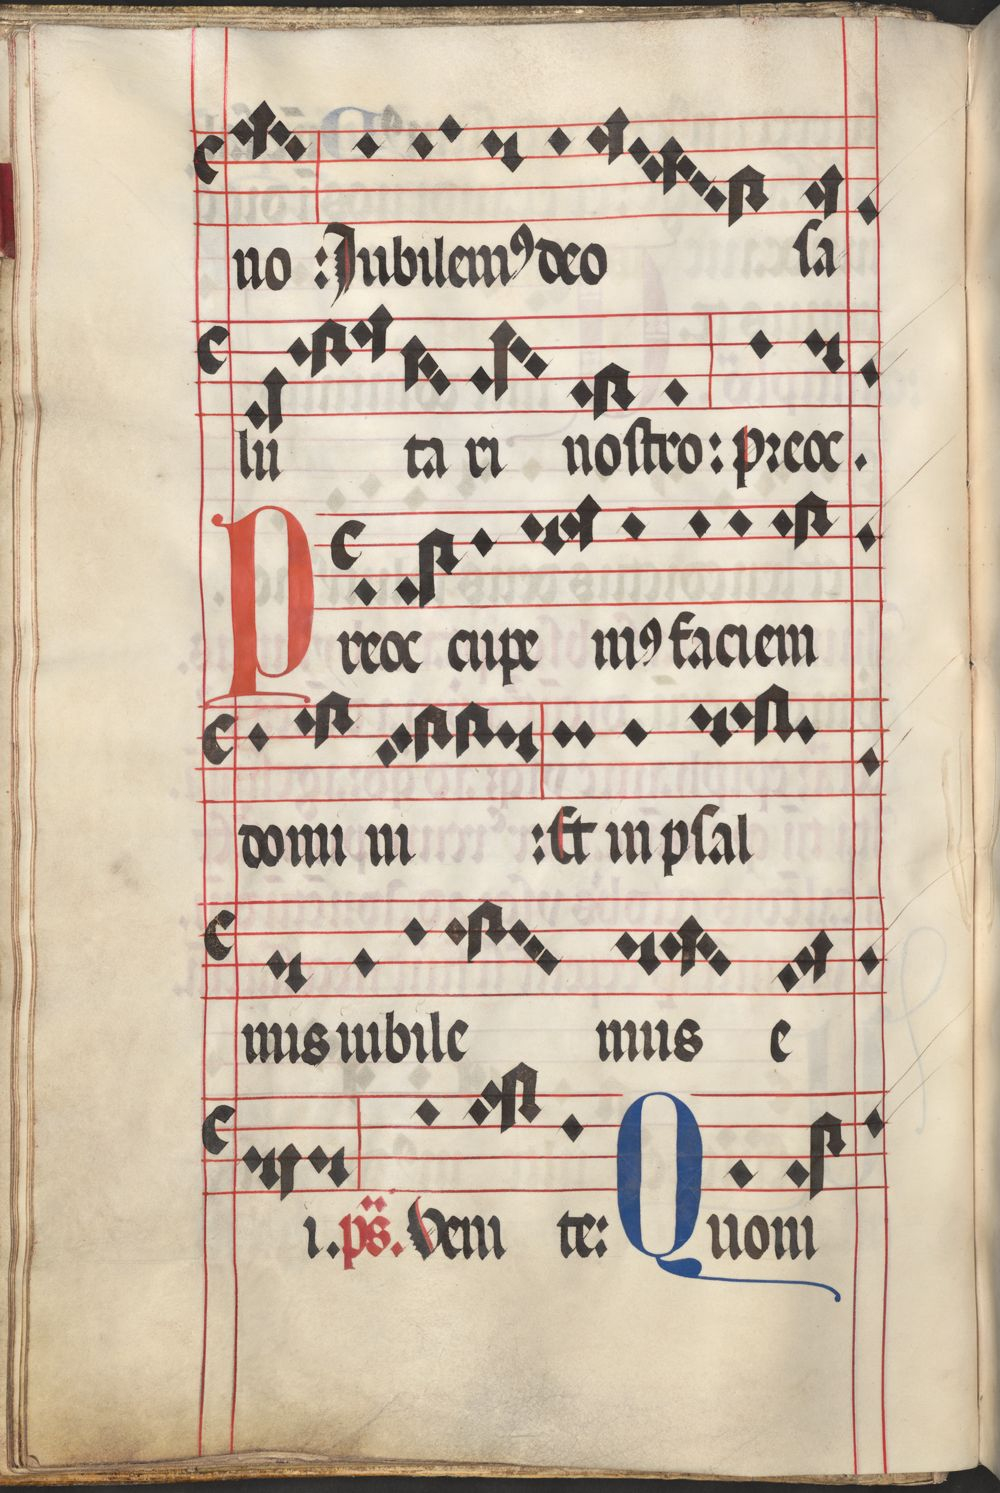 no : Jubilemꝰ deo sa
lu ta ri nostro : preoc .
Preoc cupe mꝰ faciem
domi ni : Et in psal
mus iubile mus e
i . ps̄ . Veni te : Quoni